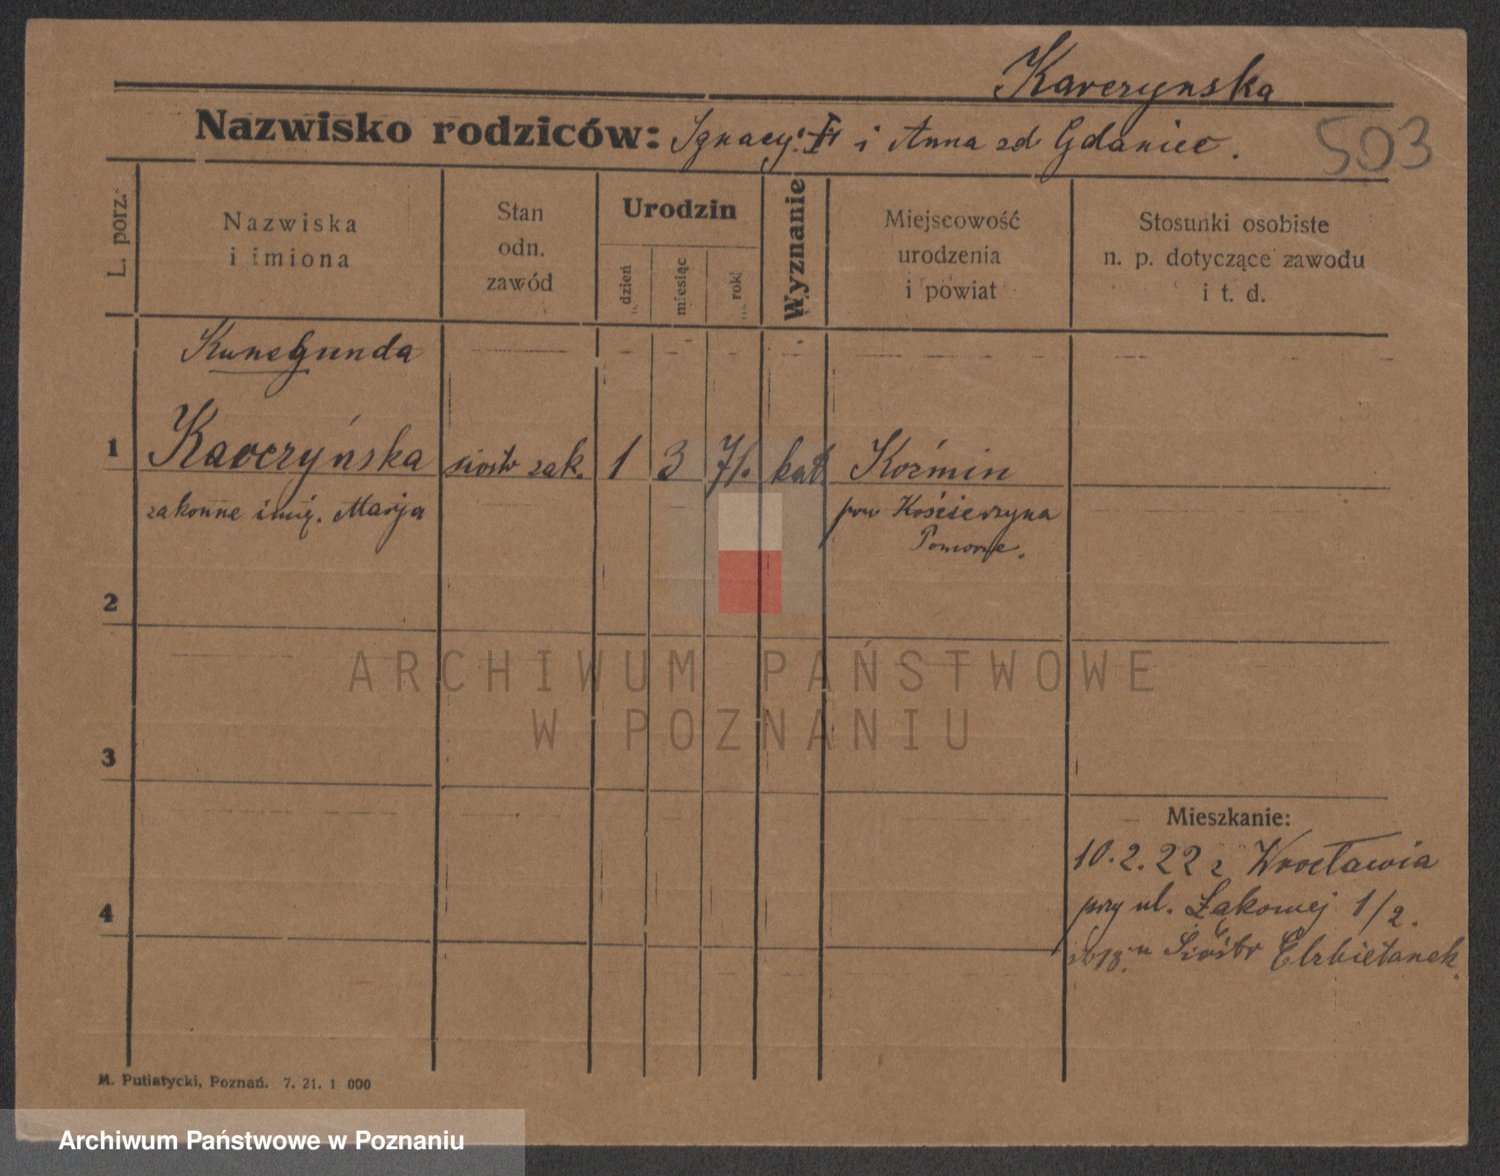 Kavczynska
Nazwisko rodziców: Ignacy i Anna zd Gdaniec.
503
L. porz.
Nazwiska
i imiona
Stan
odn.
zawód
Urodzin
dzień
miesiąc
rok
Wyznanie
Miejscowość
urodzenia
i powiat
Stosunki osobiste
n. p. dotyczące zawodu
i t. d.
Kunegunda
1 Kavczyńska siostr zak. 1 3 71. kat Koźmin
zakonne imię. Marja pow Kościerzyna
Pomorze.
2
ARCHIWUM PAŃSTWOWE
W POZNANIU
3
Mieszkanie:
10.2.22 z Wrocławia
4 przy ul. Łąkowej 1/2.
u Sióstr Elzbietanek.
M. Putiatycki, Poznań. 7. 21. 1 000
Archiwum Państwowe w Poznaniu